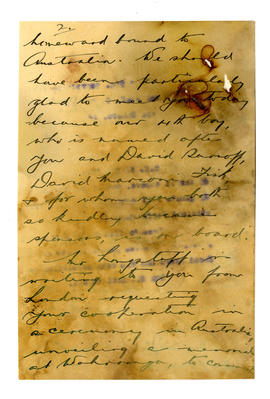 2/
homeward bound to
Australia. We should
have been particularly
glad to meet you today
because our 4th boy,
who is named after
you and David Sarnoff,
David Marconi Fisk
& for whom you both
so kindly became
sponsors, is on board.
Mr Longstaff is
writing to you from
London requesting
your cooperation in
a ceremony in Australia,
unveiling a memorial
at Wahroonga, to